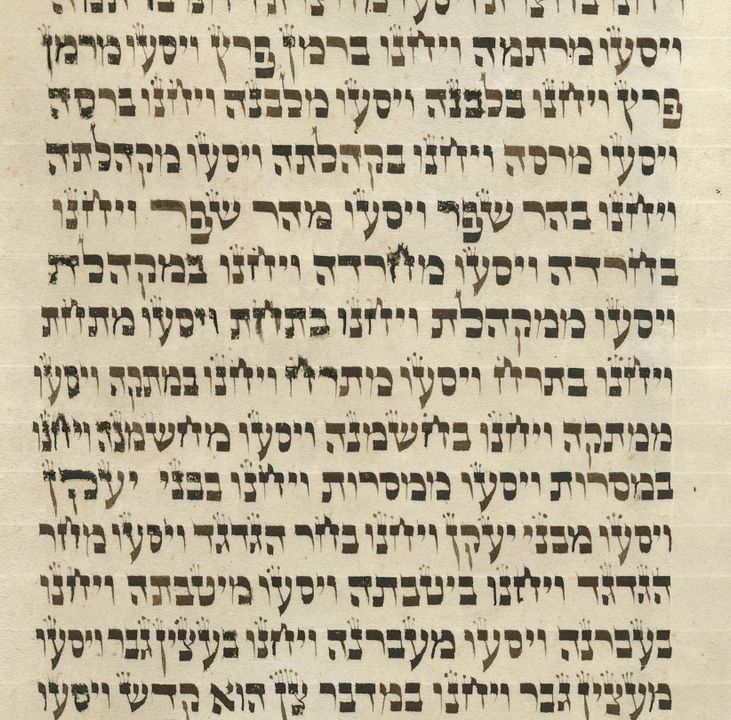 ויסעו מרתמה ויחנו ברמן פרץ ויסעו מרמן
פרץ ויחנו בלבנה ויסעו מלבנה ויחנו ברסה
ויסעו מרסה ויחנו בקהלתה ויסעו מקהלתה
ויחנו בהר שפר ויסעו מהר שפר ויחנו
בחרדה ויסעו מחרדה ויחנו במקהלת
ויסעו ממקהלת ויחנו בתחת ויסעו מתחת
ויחנו בתרח ויסעו מתרח ויחנו במתקה ויסעו
ממתקה ויחנו בחשמנה ויסעו מחשמנה ויחנו
במסרות ויסעו ממסרות ויחנו בבני יעקן
ויסעו מבני יעקן ויחנו בחר הגדגד ויסעו מחר
הגדגד ויחנו ביטבתה ויסעו מיטבתה ויחנו
בעברנה ויסעו מעברנה ויחנו בעצין גבר ויסעו
מעצין גבר ויחנו במדבר צן הוא קדש ויסעו